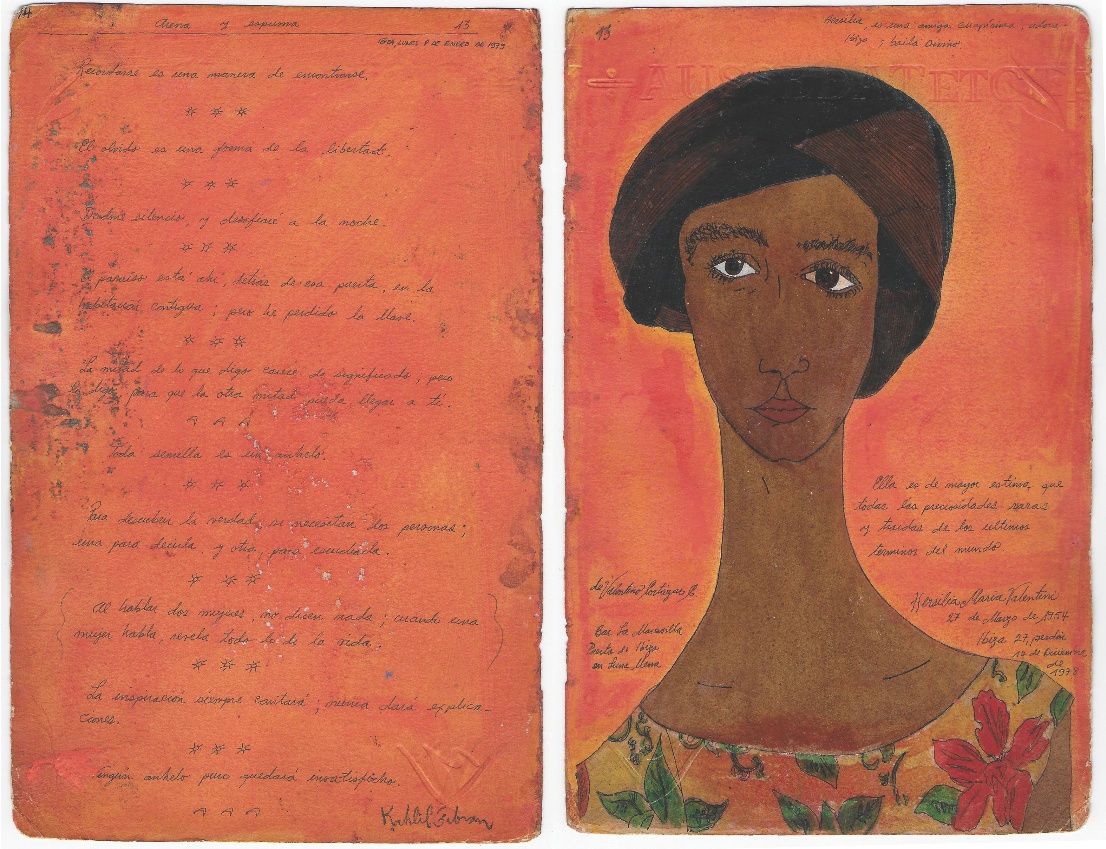 14
Arena y espuma 13
Ibiza, lunes 8 DE ENERO DE 1979
Recordarse es una manera de encontrarse.
El olvido es una forma de la libertad.
silencio, y desafiaré a la noche.
El paraíso está ahí, detrás de esa puerta, en la
habitación contigua; pero he perdido la llave.
La mitad de lo que digo carece de significado; pero
lo digo para que la otra mitad pueda llegar a ti.
Toda semilla es un anhelo.
Para descubrir la verdad, se necesitan dos personas;
una para decirla, y otra, para escucharla.
Al hablar dos mujeres, no dicen nada; cuando una
mujer habla, revela todo lo de la vida.
La inspiración siempre cantará; nunca dará explica-
ciones.
Ningún anhelo puro quedará insatisfecho.
Kahlil Gibran
13
Hersilia es una amiga , adora
Ibiza y baila Divino.
Ella es de mayor estima, que
todas las preciosidades raras
y traidas de los ultimos
terminos del mundo
de Valentino C.
Bar La Maravilla
Puerto de Ibiza
en Luna Llena
Hersilia Maria Valentini
27 de Marzo de 1954
Ibiza 29,
14 de Diciembre
de
1978